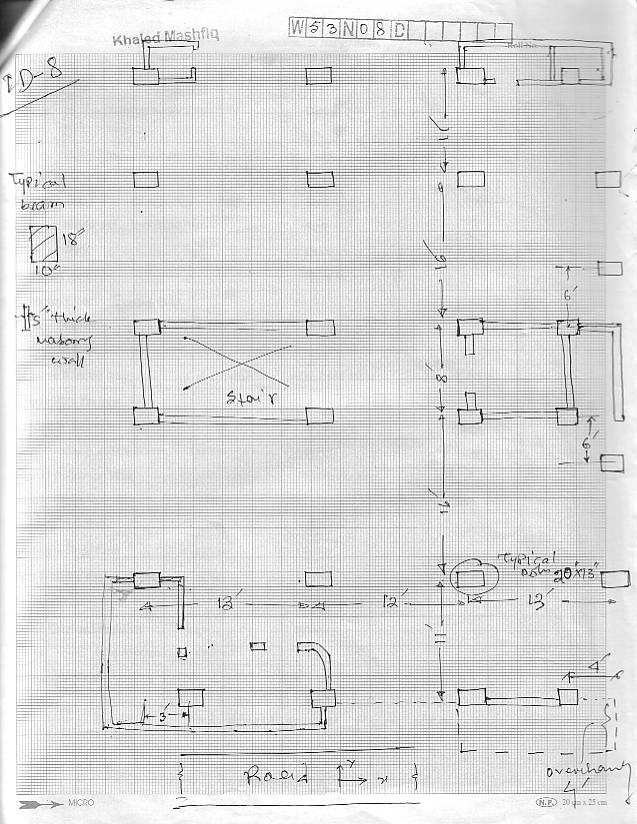 Khaled Mashfiq
W53N08D
Roll No.
ID-8
11'
Typical
beam
18"
10"
16'
6'
5" thick
masonry
wall
8'
Stair
6'
Typical
20"x13"
13'
12'
13'
11'
4'
3'
Road
Y
x
overhang
4'
MICRO
N.P. 20 cm x 25 cm